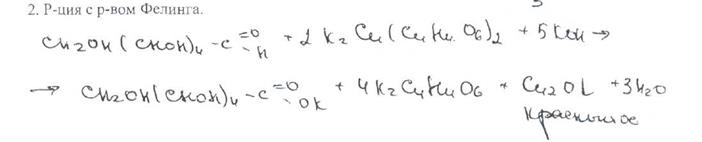 2. Р-ция с р-вом Фелинга.
CH₂OH(CHOH)₄-C =O -H + 2 K₂Cu(C₄H₄O₆)₂ + 5KOH →
→ CH₂OH(CHOH)₄-C =O -OK + 4K₂C₄H₄O₆ + Cu₂O↓ + 3H₂O
красный